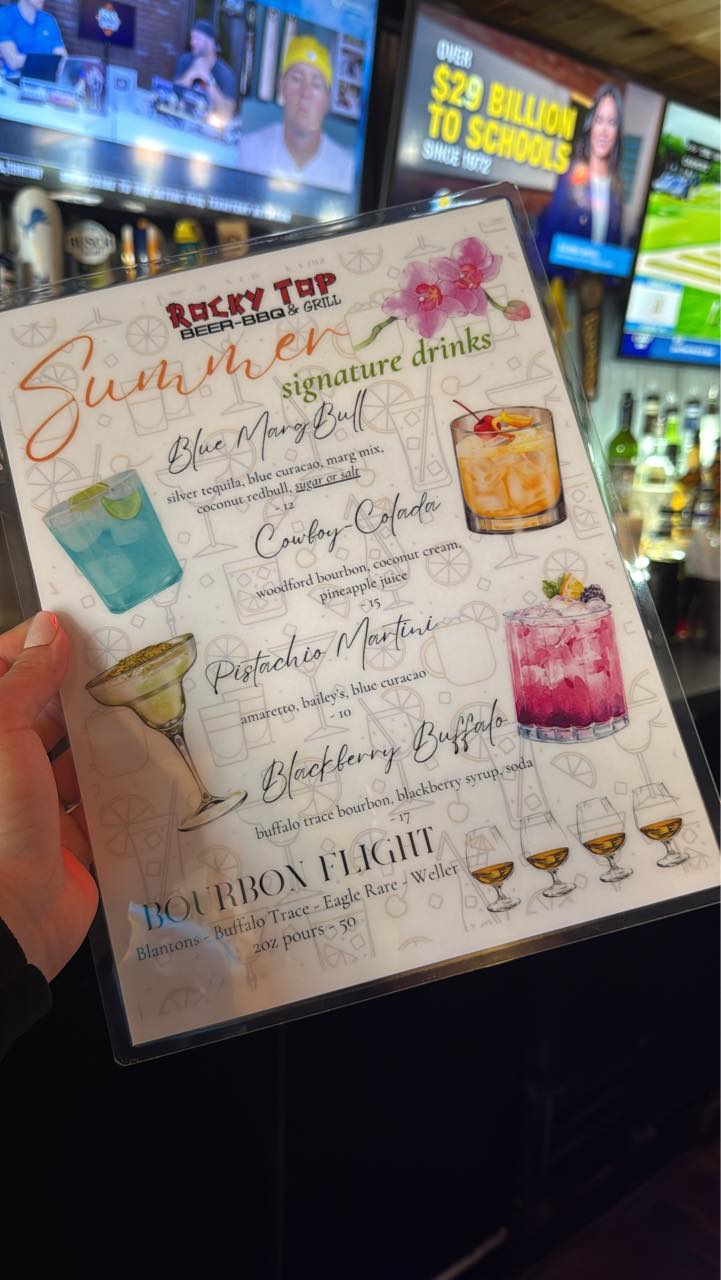 OVER
$29 BILLION
TO SCHOOLS
SINCE 1972
ROCKY TOP
BEER-BBQ & GRILL
Summer
signature drinks
Blue MargBull
silver tequila, blue curacao, marg mix,
coconut redbull, sugar or salt
- 12
Cowboy-Colada
woodford bourbon, coconut cream,
pineapple juice
- 15
Pistachio Martini
amaretto, bailey's, blue curacao
- 10
Blackberry Buffalo
buffalo trace bourbon, blackberry syrup, soda
- 17
BOURBON FLIGHT
Blantons - Buffalo Trace - Eagle Rare - Weller
2oz pours - 50